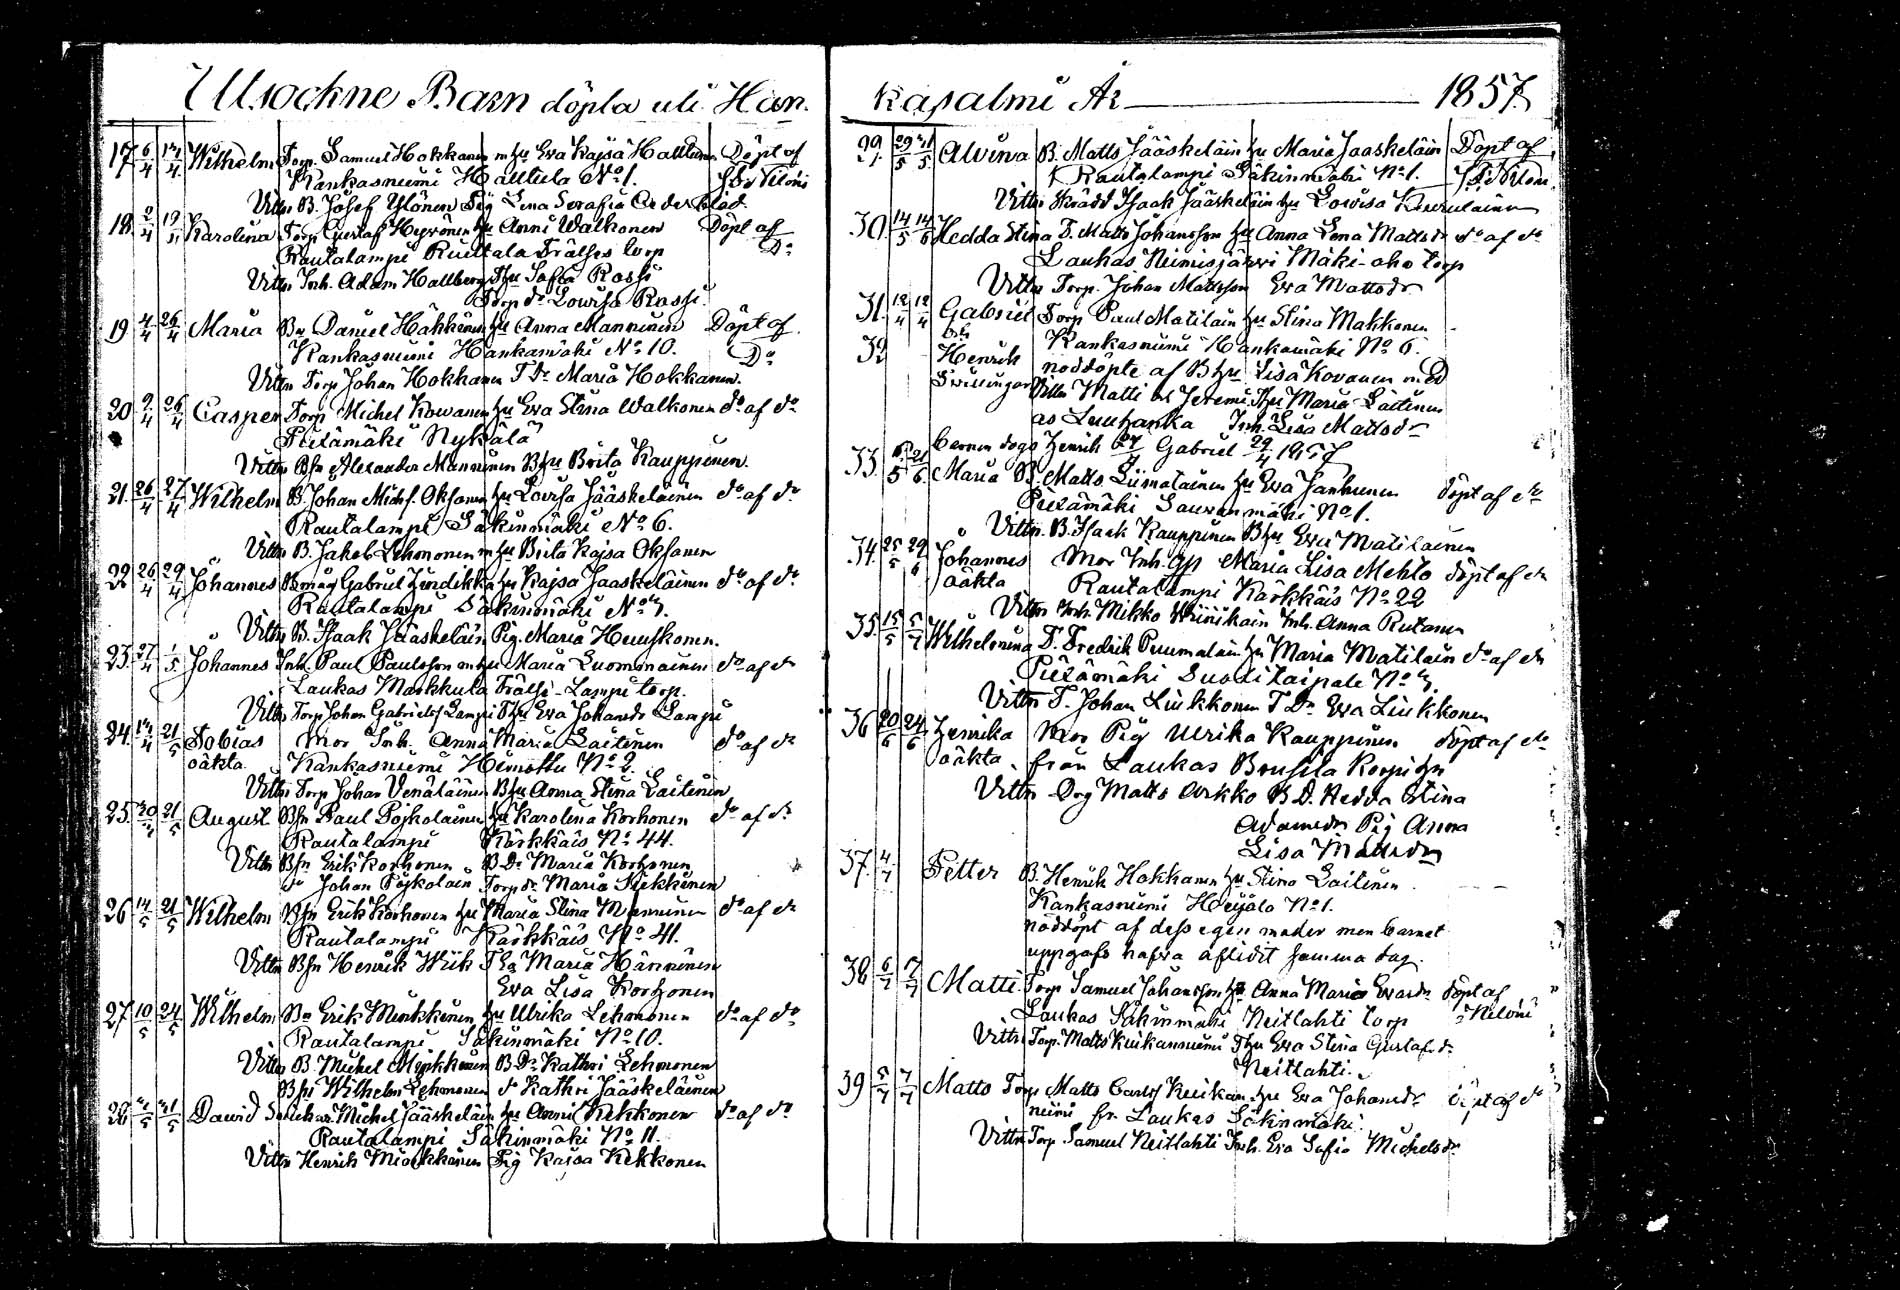 Utsockne Barn döpta uti Han-
17 6/4 14/4 Wilhelm Torp. Samuel Hokkanen m hu Eva Kajsa Halttunen Döpt af
Kankasniemi Halttula No 1.
Vittn B. Josef Ylönen Pig Lena Serafia Cederblad
18 2/4 19/4 Karolina Torp Gustaf Heyrönen hu Anni Walkonen Döpt af
Rautalampi Ruuttala Frälses torp Do
Vittn Inh. Adam Hallberg Thu Sofia Rossi
Torp dr Lovisa Rossi.
19 4/4 26/4 Maria Bn Daniel Häkkinen hu Anna Manninen Döpt af
Kankasniemi Hankamäki No 10. Do
Vittn Torp Johan Hokkanen T Dr Maria Hokkanen.
20 9/4 26/4 Casper Torp Michel Kowanen hu Eva Stina Walkonen do af do
Piexämäki Nykälä
Vittn Bfn Alexander Manninen Bhu Brita Kauppinen.
21 26/4 27/4 Wilhelm B. Johan Michf. Oksanen hu Lovisa Jääskeläinen do af do
Rautalampi Säkinmäki No 6.
Vittn B. Jakob Lehmonen m hu Brita Kajsa Oksanen
22 26/4 29/4 Johannes Bmåg Gabriel Hindikka hu Kajsa Jaaskeläinen do af do
Rautalampi Säkinmäki No 7.
Vittn B. Isaak Jääskeläin Pig. Maria Huuskonen.
23 27/4 1/5 Johannes Inh. Paul Paulsson m hu Maria Luomanainen do af do
Laukas Markkula Frälse-Lampi torp.
Vittn Torp Johan Gabrielsf Lampi Thu Eva Johansdr Lampi
24 14/4 21/5 Tobias Mor Inh. Anna Maria Laitinen do af do
oäkta Kankasniemi Heimottu No 2.
Vittn Torp Johan Venäläinen Bhu Anna Stina Laitinen
25 30/4 21/5 August Bfn Paul Pöjkolainen hu Karolina Korhonen do af do
Rautalampi Kärkkäis No 44.
Vittn Bfn Erik Korhonen B Dr Maria Korhonen
do Johan Pöjkolain Torp dr Maria Kekkinen
26 14/5 21/5 Wilhelm Bfn Erik Korhonen hu Maria Stina Manninen do af do
Rautalampi Kärkkäis No 41.
Vittn Bfn Henrik Wiik Maria Hänninen
Eva Lisa Korhonen
27 10/5 24/5 Wilhelm Bn Erik Minkkinen hu Ulrika Lehmonen do af do
Rautalampi Säkinmäki No 10.
Vittn B. Mickel Minkkinen B Dr Kathri Lehmonen
Bfn Wilhelm Lehmonen do Kathri Jääskeläinen
28 31/5 David Michel Jääskeläin hu Anni Kekkonen do af do
Rautalampi Säkinmäki No 11.
Vittn Henrik Minkkinen Pig Kajsa Kekkonen
kasalmi År 1857
29 29/5 31/5 Alvina B. Matts Jääskeläin hu Maria Jaaskeläin Döpt af
Rautalampi Säkinmäki No 1.
Vittn Isaak Jääskeläin hu Lowisa
30 14/5 14/6 Hedda Stina T. Matts Johansson hu Anna Lena Mattsdr do af do
Laukas Niemisjärvi Mäki-aho torp
Vittn Torp. Johan Mattsson Eva Mattsdr
31. 12/4 12/4 Gabriel Torp Paul Matilain hu Stina Makkonen
och Kankasniemi Hankamäki No 6.
32 Henrik nöddöpte af Bhu Lisa Kovanen med
Tvillingar Vittn Matti Jeremi Thu Maria Laitinen
as Luuhanka Inh. Lisa Mattsdr
barnen dogo Henrik Gabriel 29/4 1857
33. 21/6 Maria B. Matts Liimatainen hu Eva Janhunen döpt af do
Piexämäki Sauvonmäki No 1.
Vittn. B. Isaak Kauppinen Bhu Eva Matilainen
34. 25/5 29/6 Johannes Mor Inh. gft Maria Lisa Mehto döpt af do
oäkta Rautalampi Kärkkäis No 22
Vittn Inh. Mikko Inh. Anna Rutanen
35. 15/5 5/7 Wilhelmina T. Fredrik Puumalain hu Maria Matilain do af do
Piexämäki Suontitaipale No 7.
Vittn T. Johan Liukkonen T Dr Eva Liukkonen
36 20/6 24/6 Henrika Mor Pig Ulrika Kauppinen döpt af do
oäkta från Laukas
Vittn Drg Matts Arkko B.D. Hedda Stina
Adamsdr Pig Anna
Lisa Mattsdr
37. 4/7 Petter B. Henrik Hokkanen hu Stina Laitinen
Kankasniemi Heijola No 1.
nöddöpt af dess egen moder men barnet
uppgafs hafva aflidit samma dag.
38 6/7 7/7 Matti Torp Samuel Johansson hu Anna Maria Evardr döpt af
Laukas Säkinmäki Neitlahti torp
Vittn Torp. Matts Kiukasniemi Thu Eva Stina Gustafsdr
Neitlahti.
39 5/7 7/7 Matts Torp Matts Carlsf Kiukas hu Eva Johansdr döpt af do
niemi fr. Laukas Säkinmäki.
Vittn Torp Samuel Neitlahti Inh. Eva Sofia Michelsdr